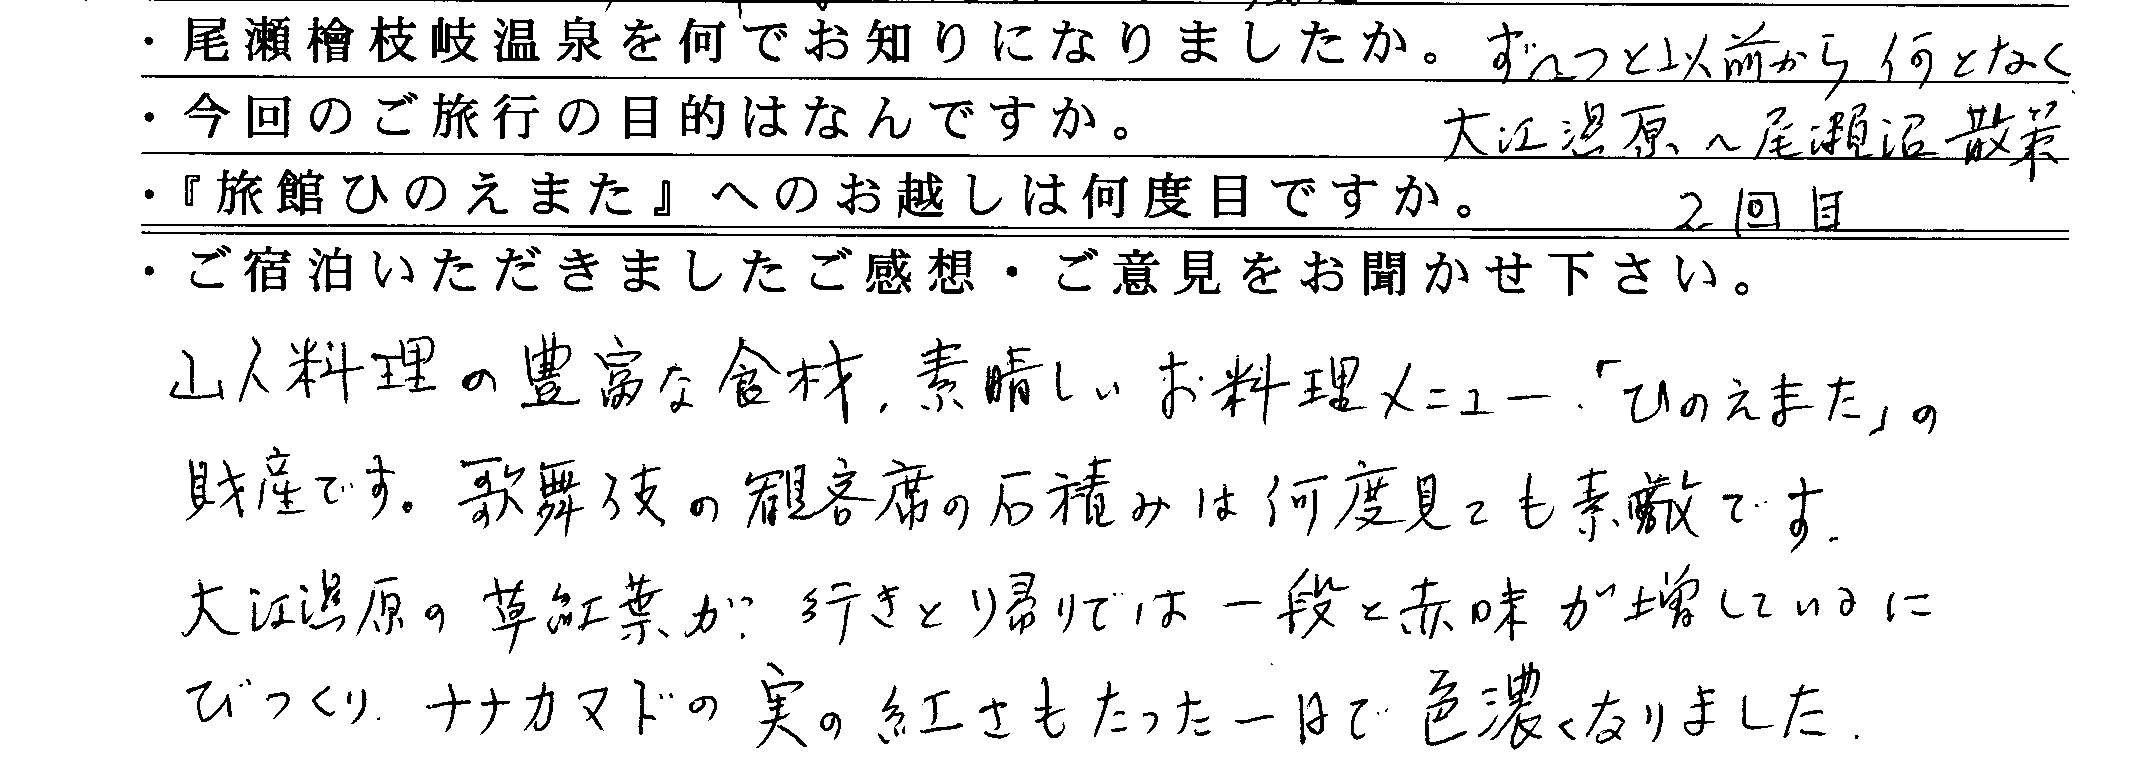 ・尾瀬檜枝岐温泉を何でお知りになりましたか。 ず〜っと以前から何となく
・今回のご旅行の目的はなんですか。 大江湿原〜尾瀬沼散策
・『旅館ひのえまた』へのお越しは何度目ですか。 2回目
・ご宿泊いただきましたご感想・ご意見をお聞かせ下さい。
山人料理の豊富な食材、素晴しいお料理メニュー、「ひのえまた」の
財産です。歌舞伎の観客席の石積みは何度見ても素敵です。
大江湿原の草紅葉が、行きと帰りでは一段と赤味が増しているに
びっくり、ナナカマドの実の紅さもたった一日で色濃くなりました。